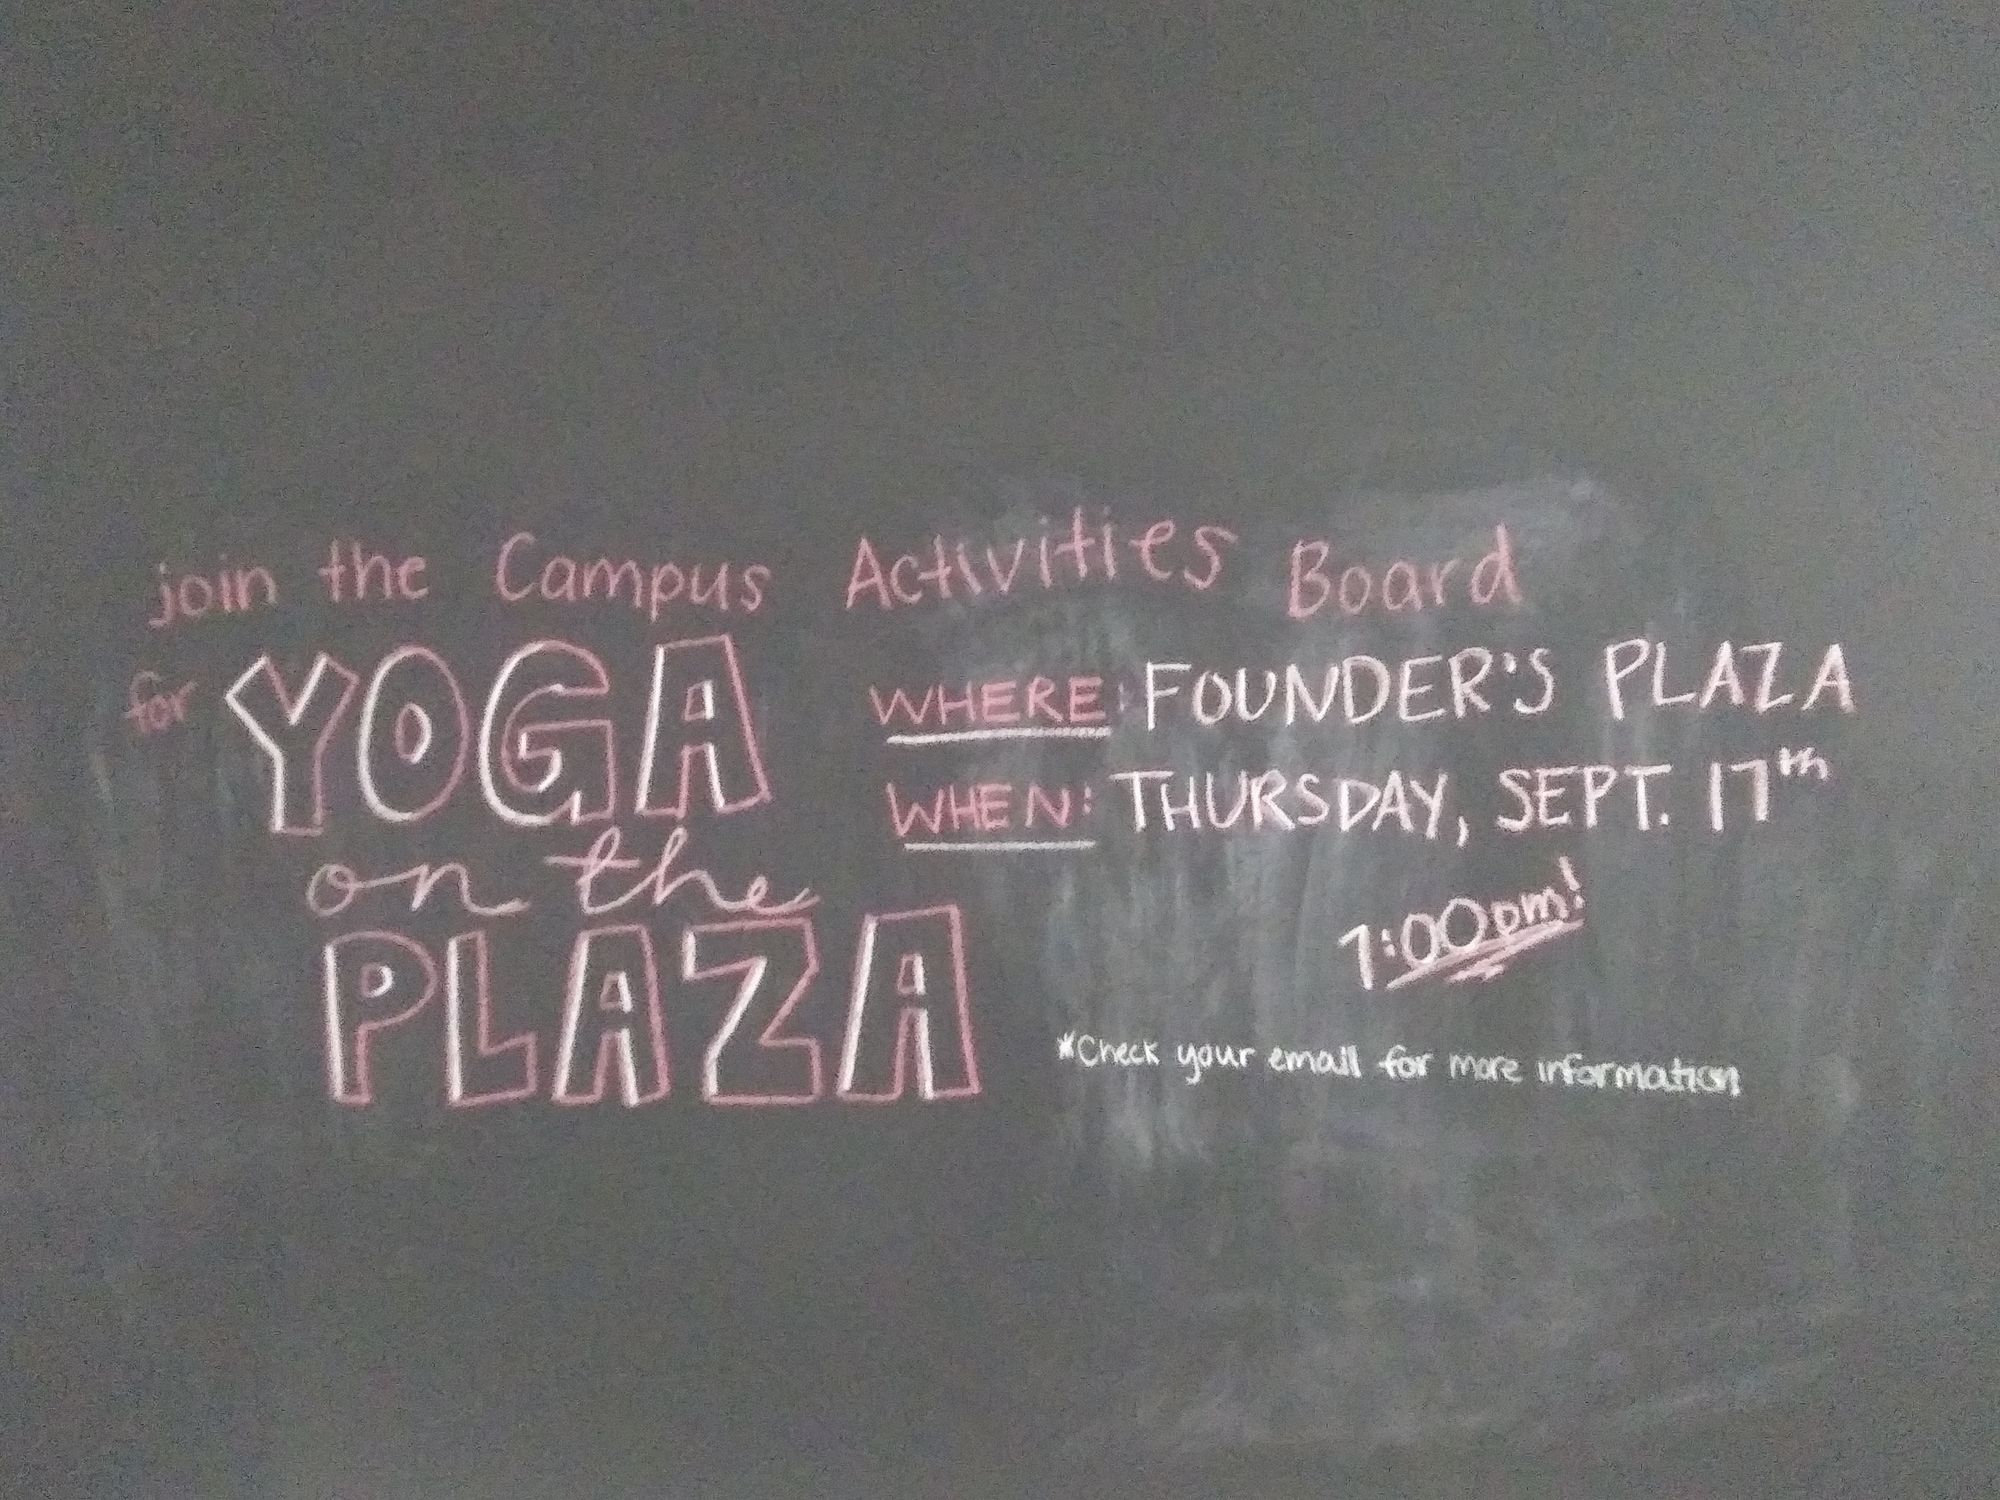 join the Campus Activities Board
for YOGA
on the
PLAZA
WHERE: FOUNDER'S PLAZA
WHEN: THURSDAY, SEPT. 17th
7:00pm!
*Check your email for more information